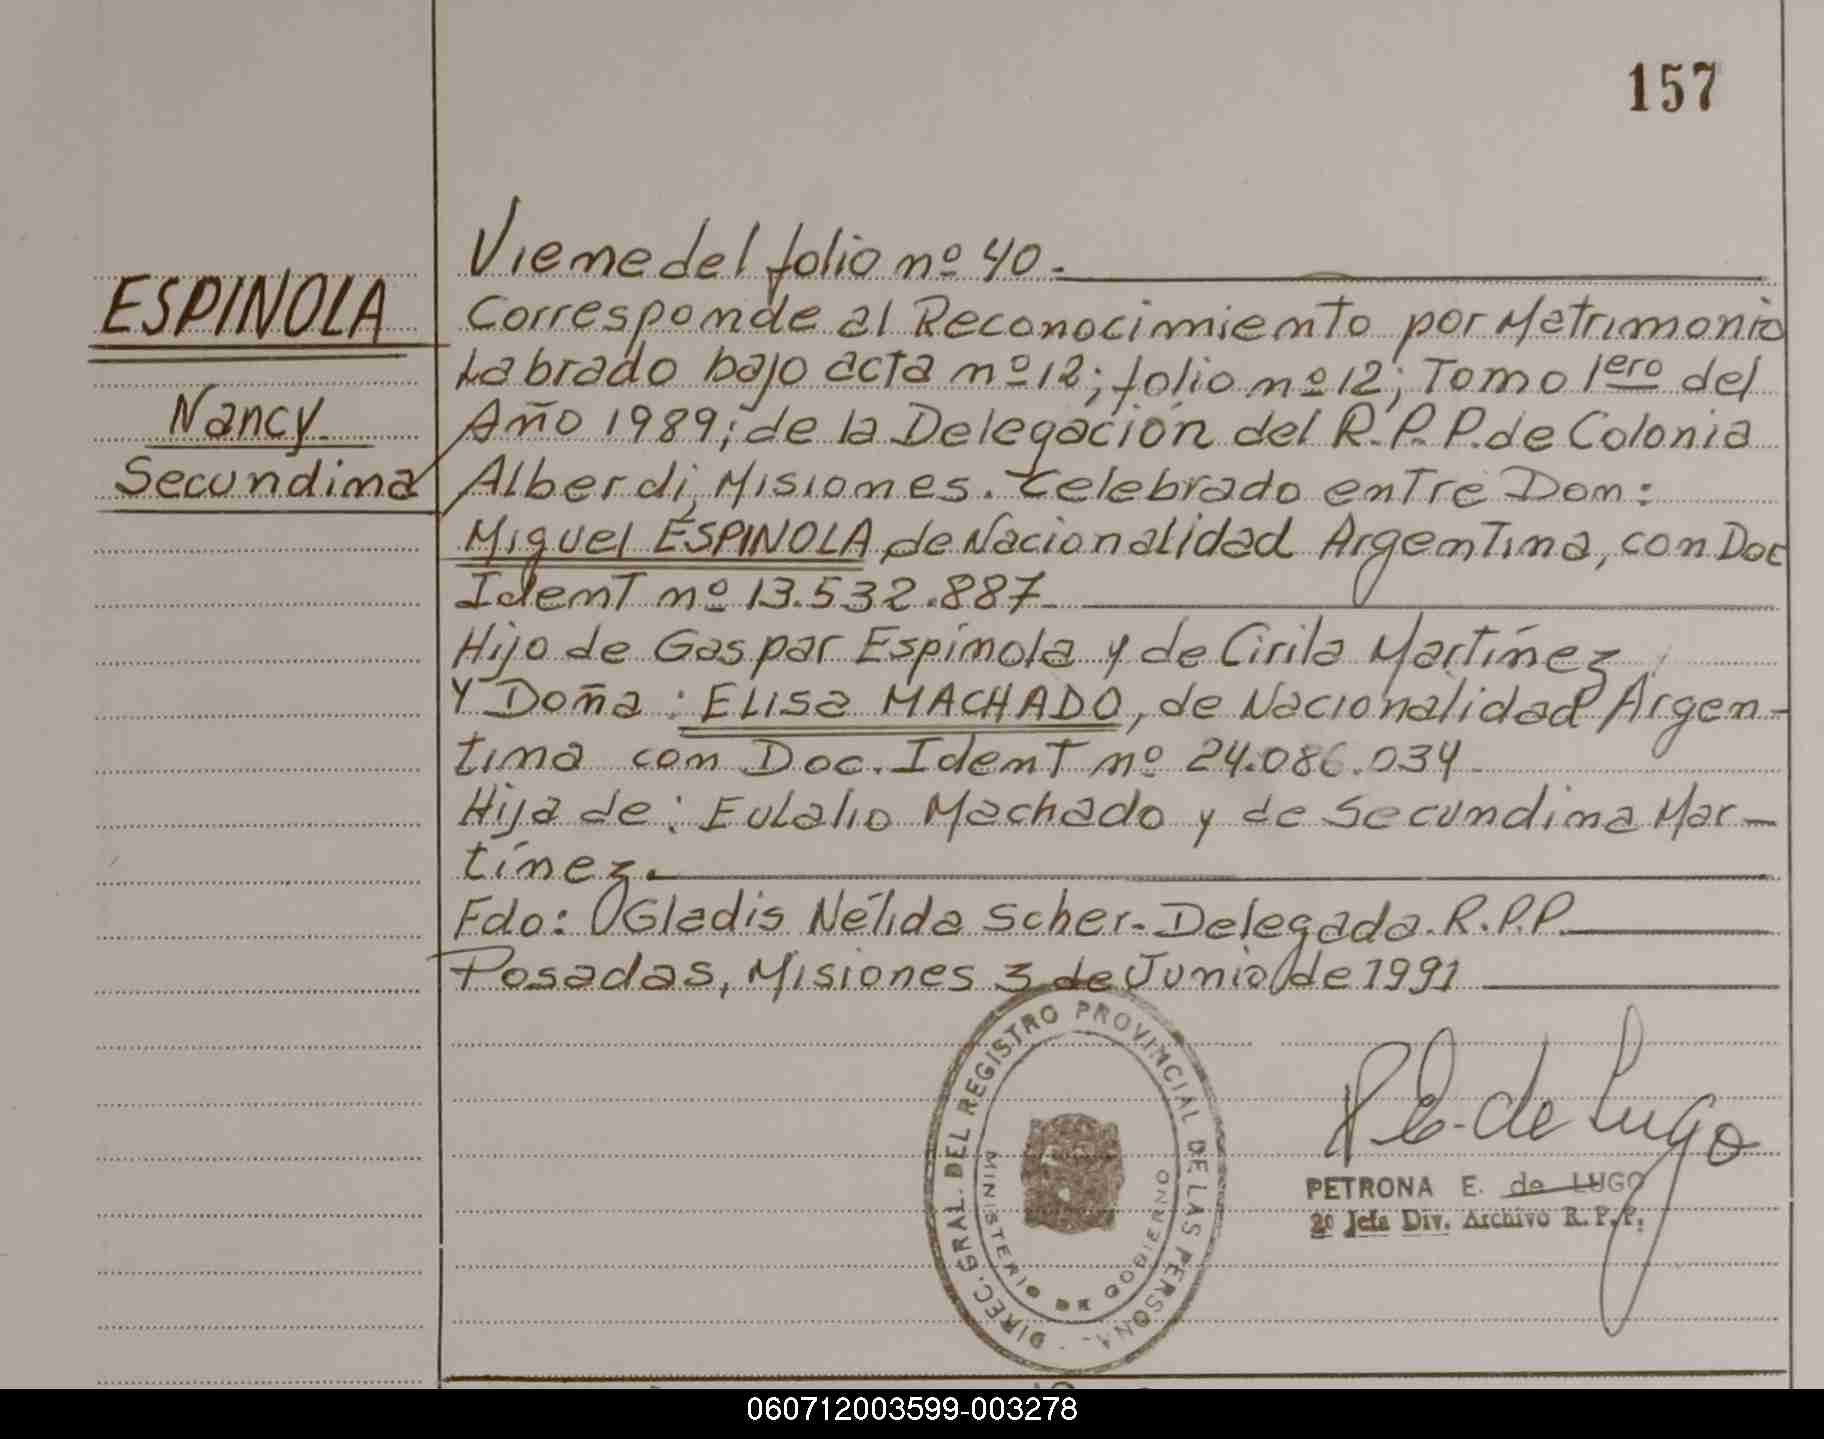 157
ESPINOLA
Nancy
Secundina
Viene del folio nº 40.
Corresponde al Reconocimiento por Matrimonio
Labrado bajo acta nº 12; folio nº 12; Tomo 1ero del
Año 1989; de la Delegación del R.P.P. de Colonia
Alberdi, Misiones. Celebrado entre Don:
Miguel ESPINOLA de Nacionalidad Argentina, con Doc
Ident nº 13.532.887
Hijo de Gaspar Espínola y de Cirila Martínez
Y Doña: ELISa MACHADO, de Nacionalidad Argen-
tina con Doc. Ident nº 24.086.034
Hija de: Eulalio Machado y de Secundina Mar-
tínez.
Fdo: Gladis Nélida Scher. Delegada. R.P.P.
Posadas, Misiones 3 de Junio de 1991
DIREC. GRAL. DEL REGISTRO PROVINCIAL DE LAS PERSONA
MINISTERIO DE GOBIERNO
P.E. de Lugo
PETRONA E. de LUGO
2º Jefa Div. Archivo R.P.P.
060712003599-003278